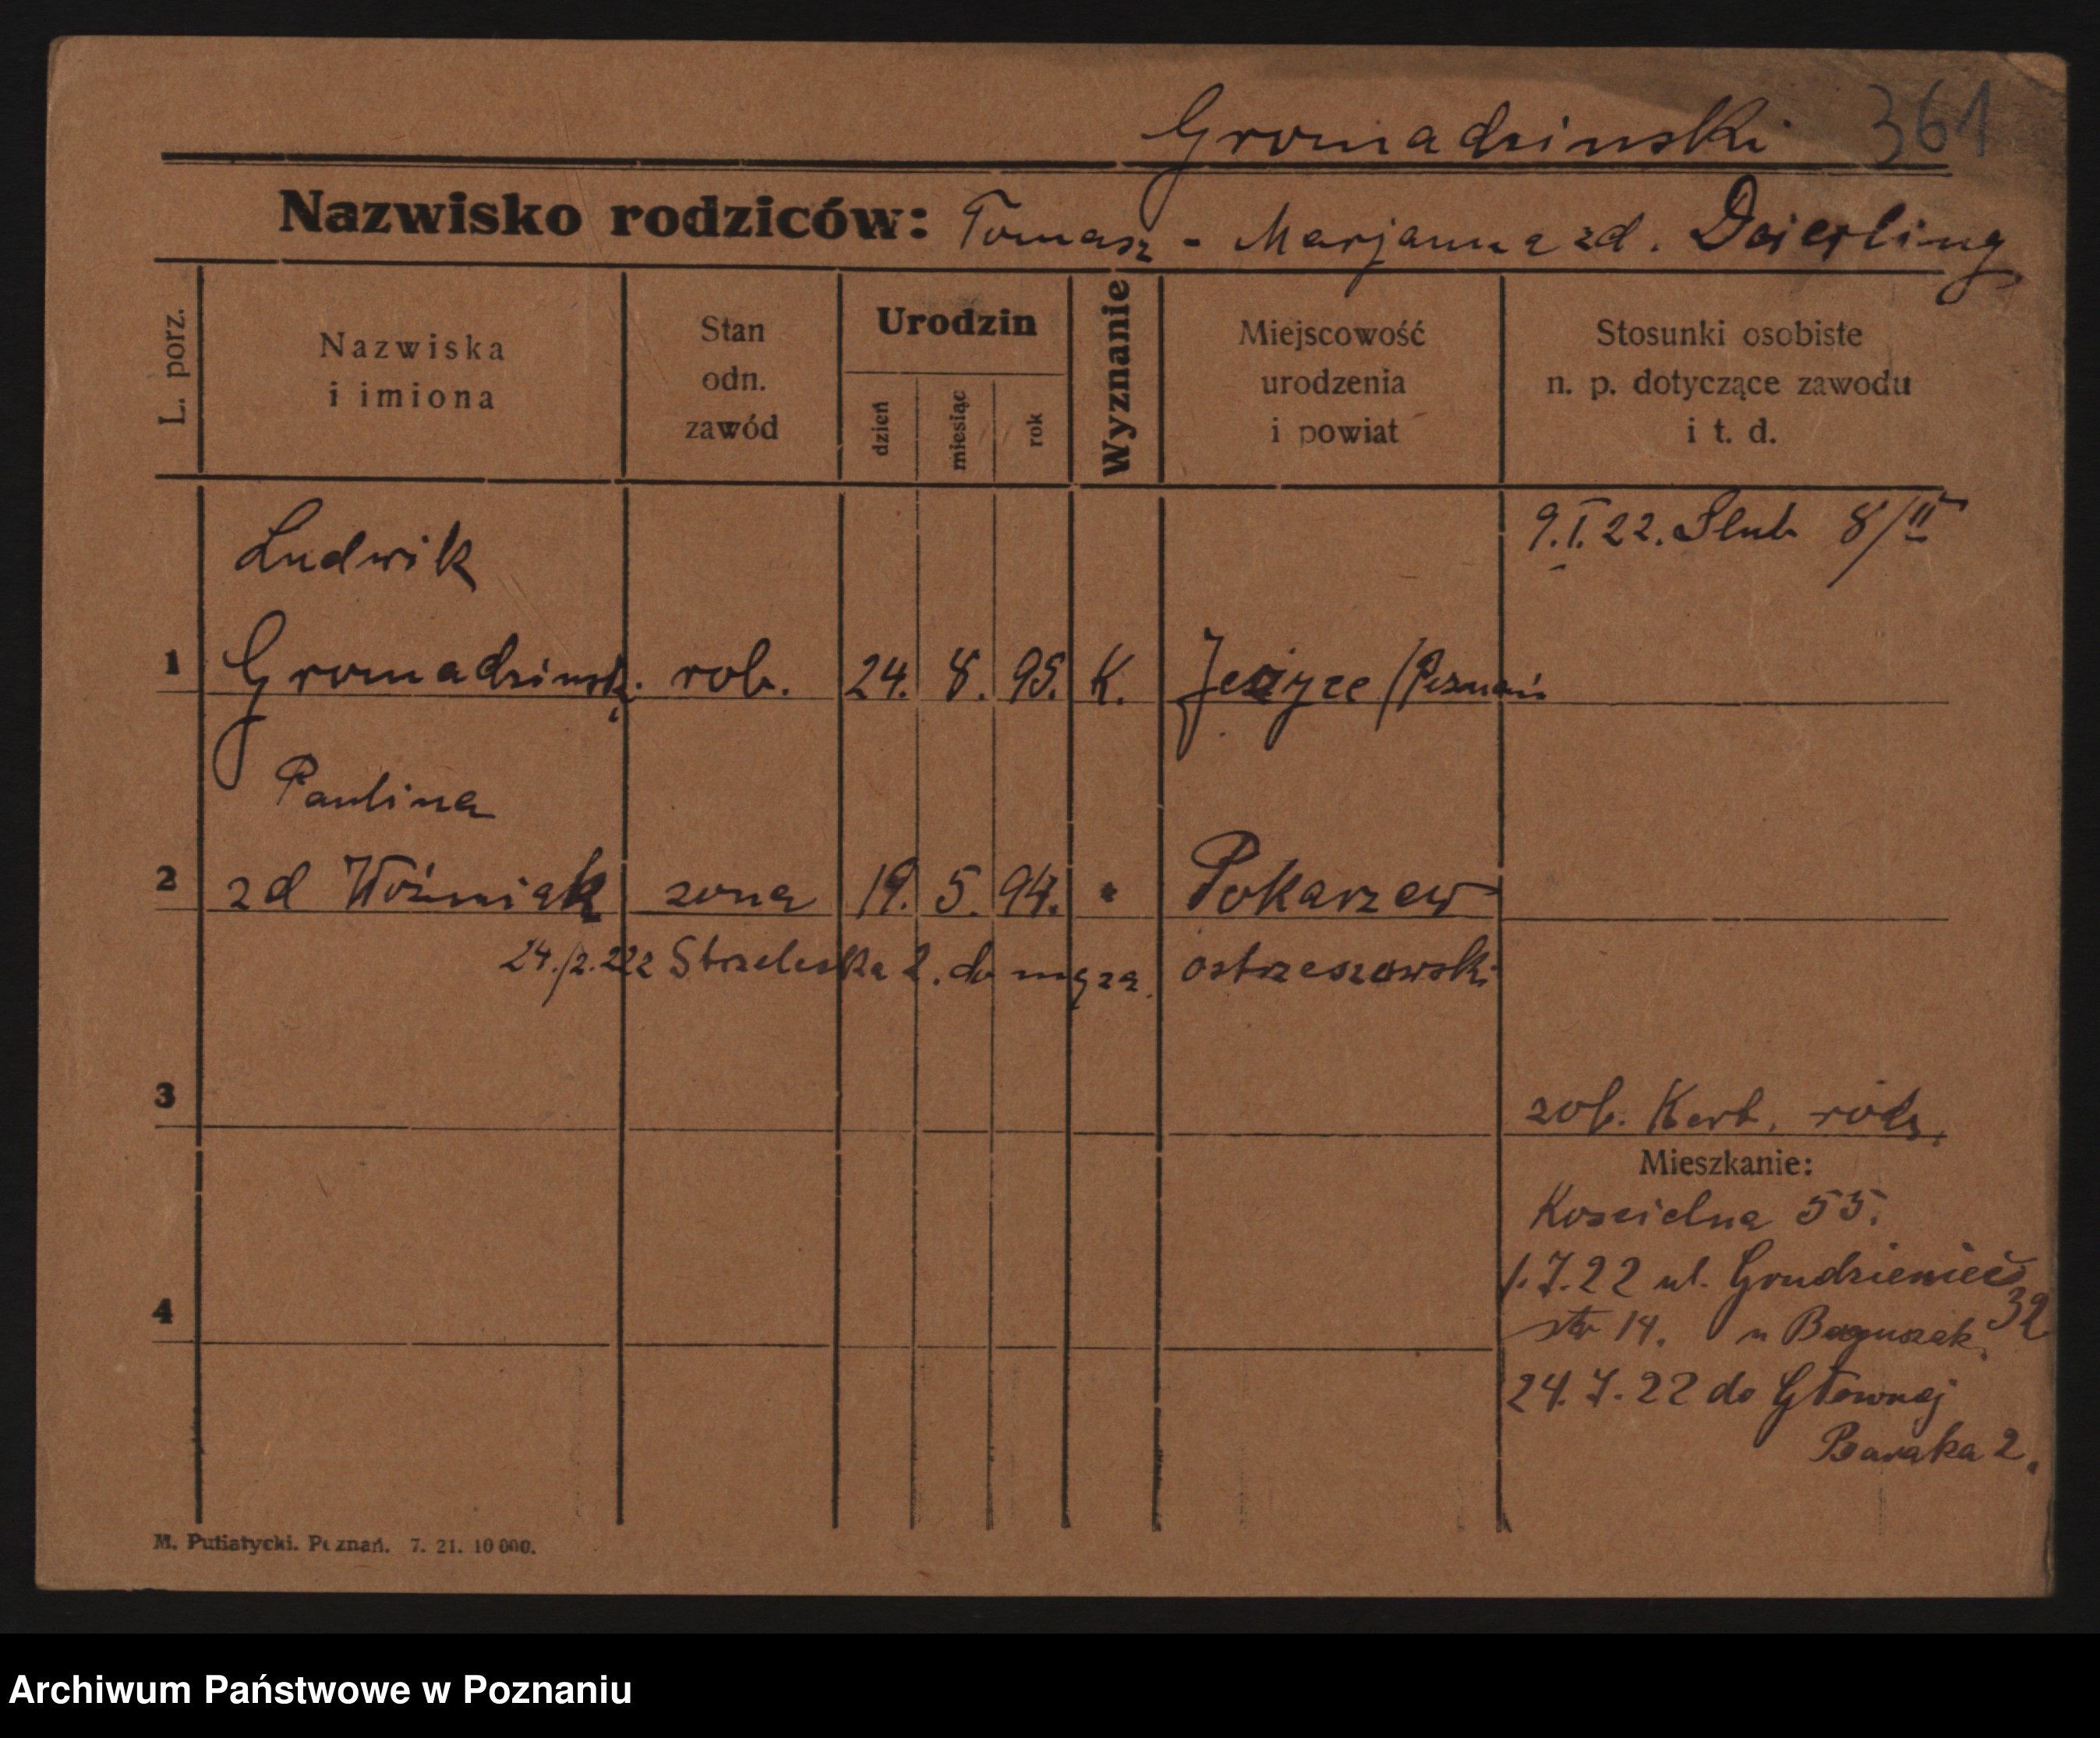 Gromadzinski 361
Nazwisko rodziców: Tomasz - Marjanna zd.
L. porz.
Nazwiska
i imiona
Stan
odn.
zawód
Urodzin
dzień
miesiąc
rok
Wyznanie
Miejscowość
urodzenia
i powiat
Stosunki osobiste
n. p. dotyczące zawodu
i t. d.
9.I.22. Slub 8/II
Ludwik
1 Gromadzinski. rob. 24. 8. 95. K. Jeżyce /Poznań
Paulina
2 zd Woźniak zona 19. 5. 94. " Pokarzew
24./2.222 Strzeleska 2. do męza. ostrzeszowski
3
zob. Kart. rodz.
Mieszkanie:
Koscielna 55.
1.7.22 ul. Grudzieniec
32
4
str 14. u
24.7.22 do Głownej
Baraka 2.
M. Putiatycki. Poznań. 7. 21. 10 000.
Archiwum Państwowe w Poznaniu